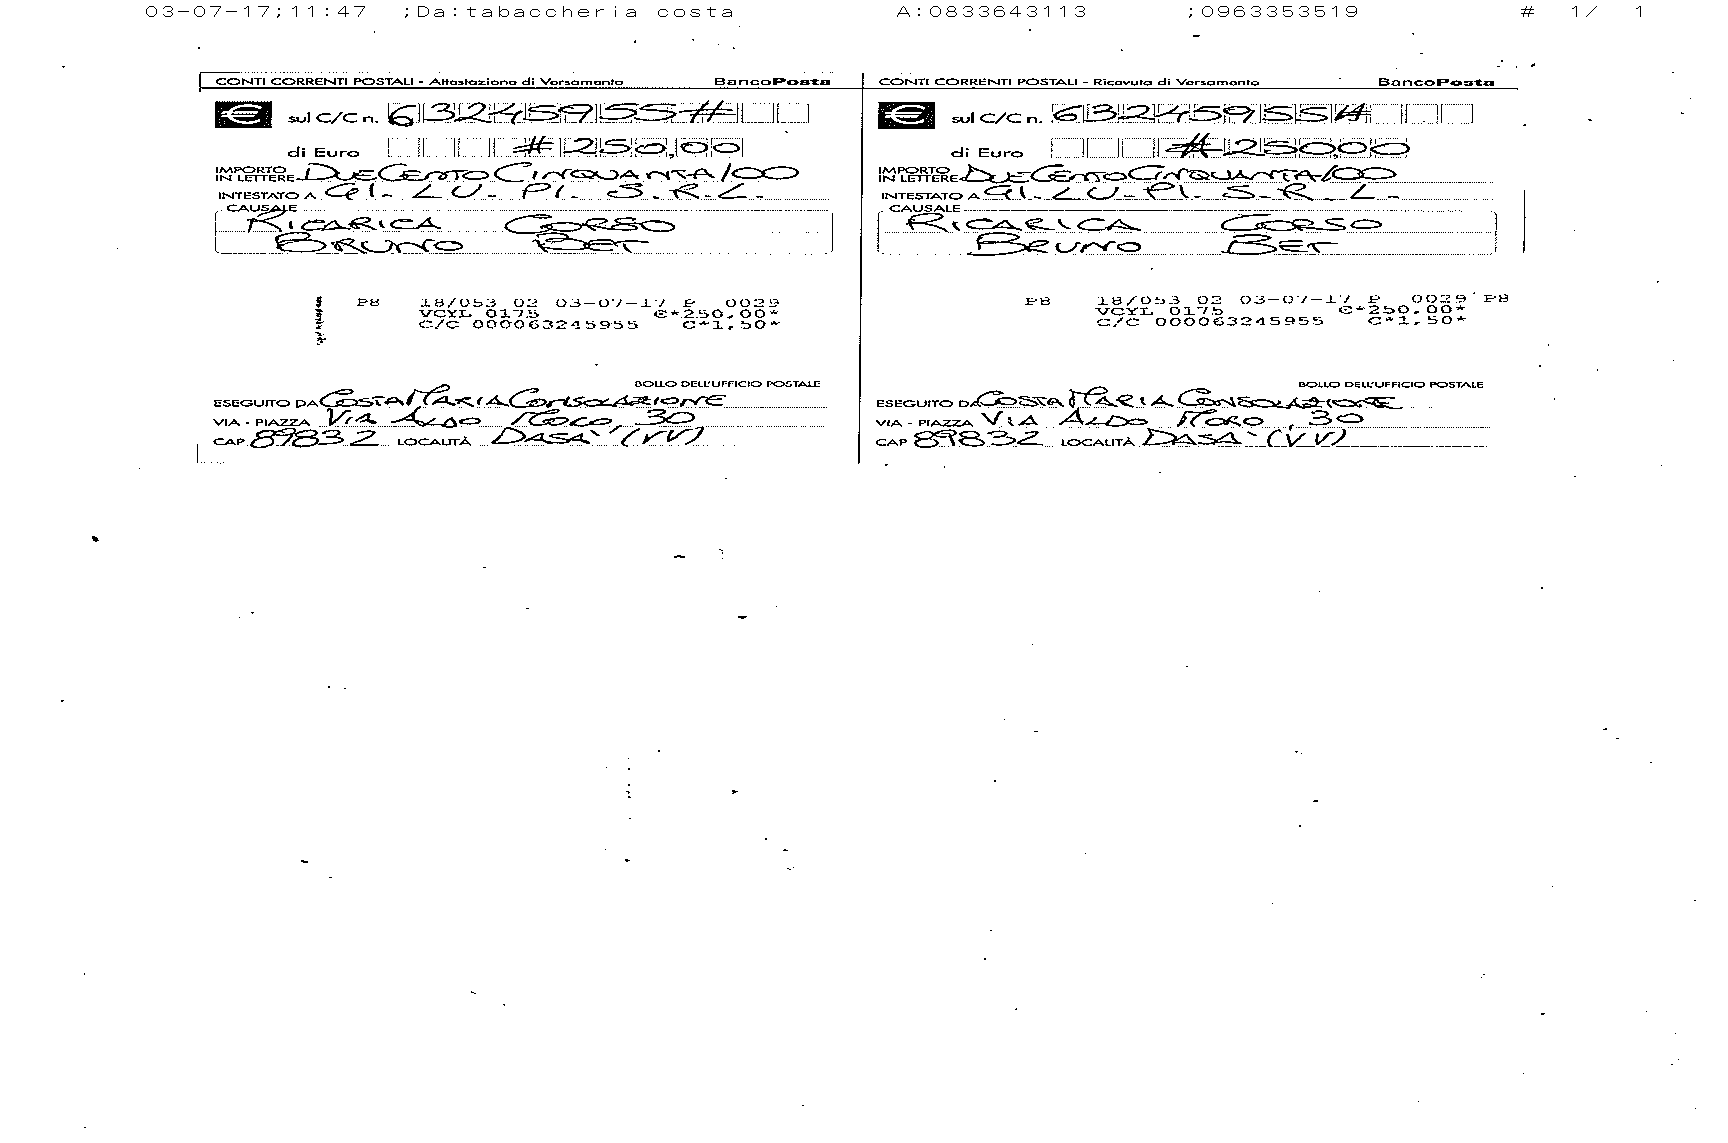 03-07-17;11:47 ;Da:tabaccheria costa A:0833643113 ;0963353519 # 1/ 1
CONTI CORRENTI POSTALI - Attestazione di Versamento BancoPosta
€ sul C/C n. 63245955#
di Euro #250,00
IMPORTO IN LETTERE DUECENTO CINQUANTA/00
INTESTATO A GI. LU. PI. S.R.L.
CAUSALE
RICARICA CORSO
BRUNO BET
P8 18/053 02 03-07-17 P 0029
VCYL 0175 €*250,00*
C/C 000063245955 C*1,50*
BOLLO DELL'UFFICIO POSTALE
ESEGUITO DA COSTA MARIA CONSOLAZIONE
VIA - PIAZZA VIA ALDO MORO, 30
CAP 89832 LOCALITÀ DASA' (VV)
CONTI CORRENTI POSTALI - Ricevuta di Versamento BancoPosta
€ sul C/C n. 63245955#
di Euro #250,00
IMPORTO IN LETTERE DUECENTO CINQUANTA/00
INTESTATO A GI. LU. PI. S.R.L.
CAUSALE
RICARICA CORSO
BRUNO BET
P8 18/053 02 03-07-17 P 0029 P8
VCYL 0175 €*250,00*
C/C 000063245955 C*1,50*
BOLLO DELL'UFFICIO POSTALE
ESEGUITO DA COSTA MARIA CONSOLAZIONE
VIA - PIAZZA VIA ALDO MORO, 30
CAP 89832 LOCALITÀ DASA' (VV)